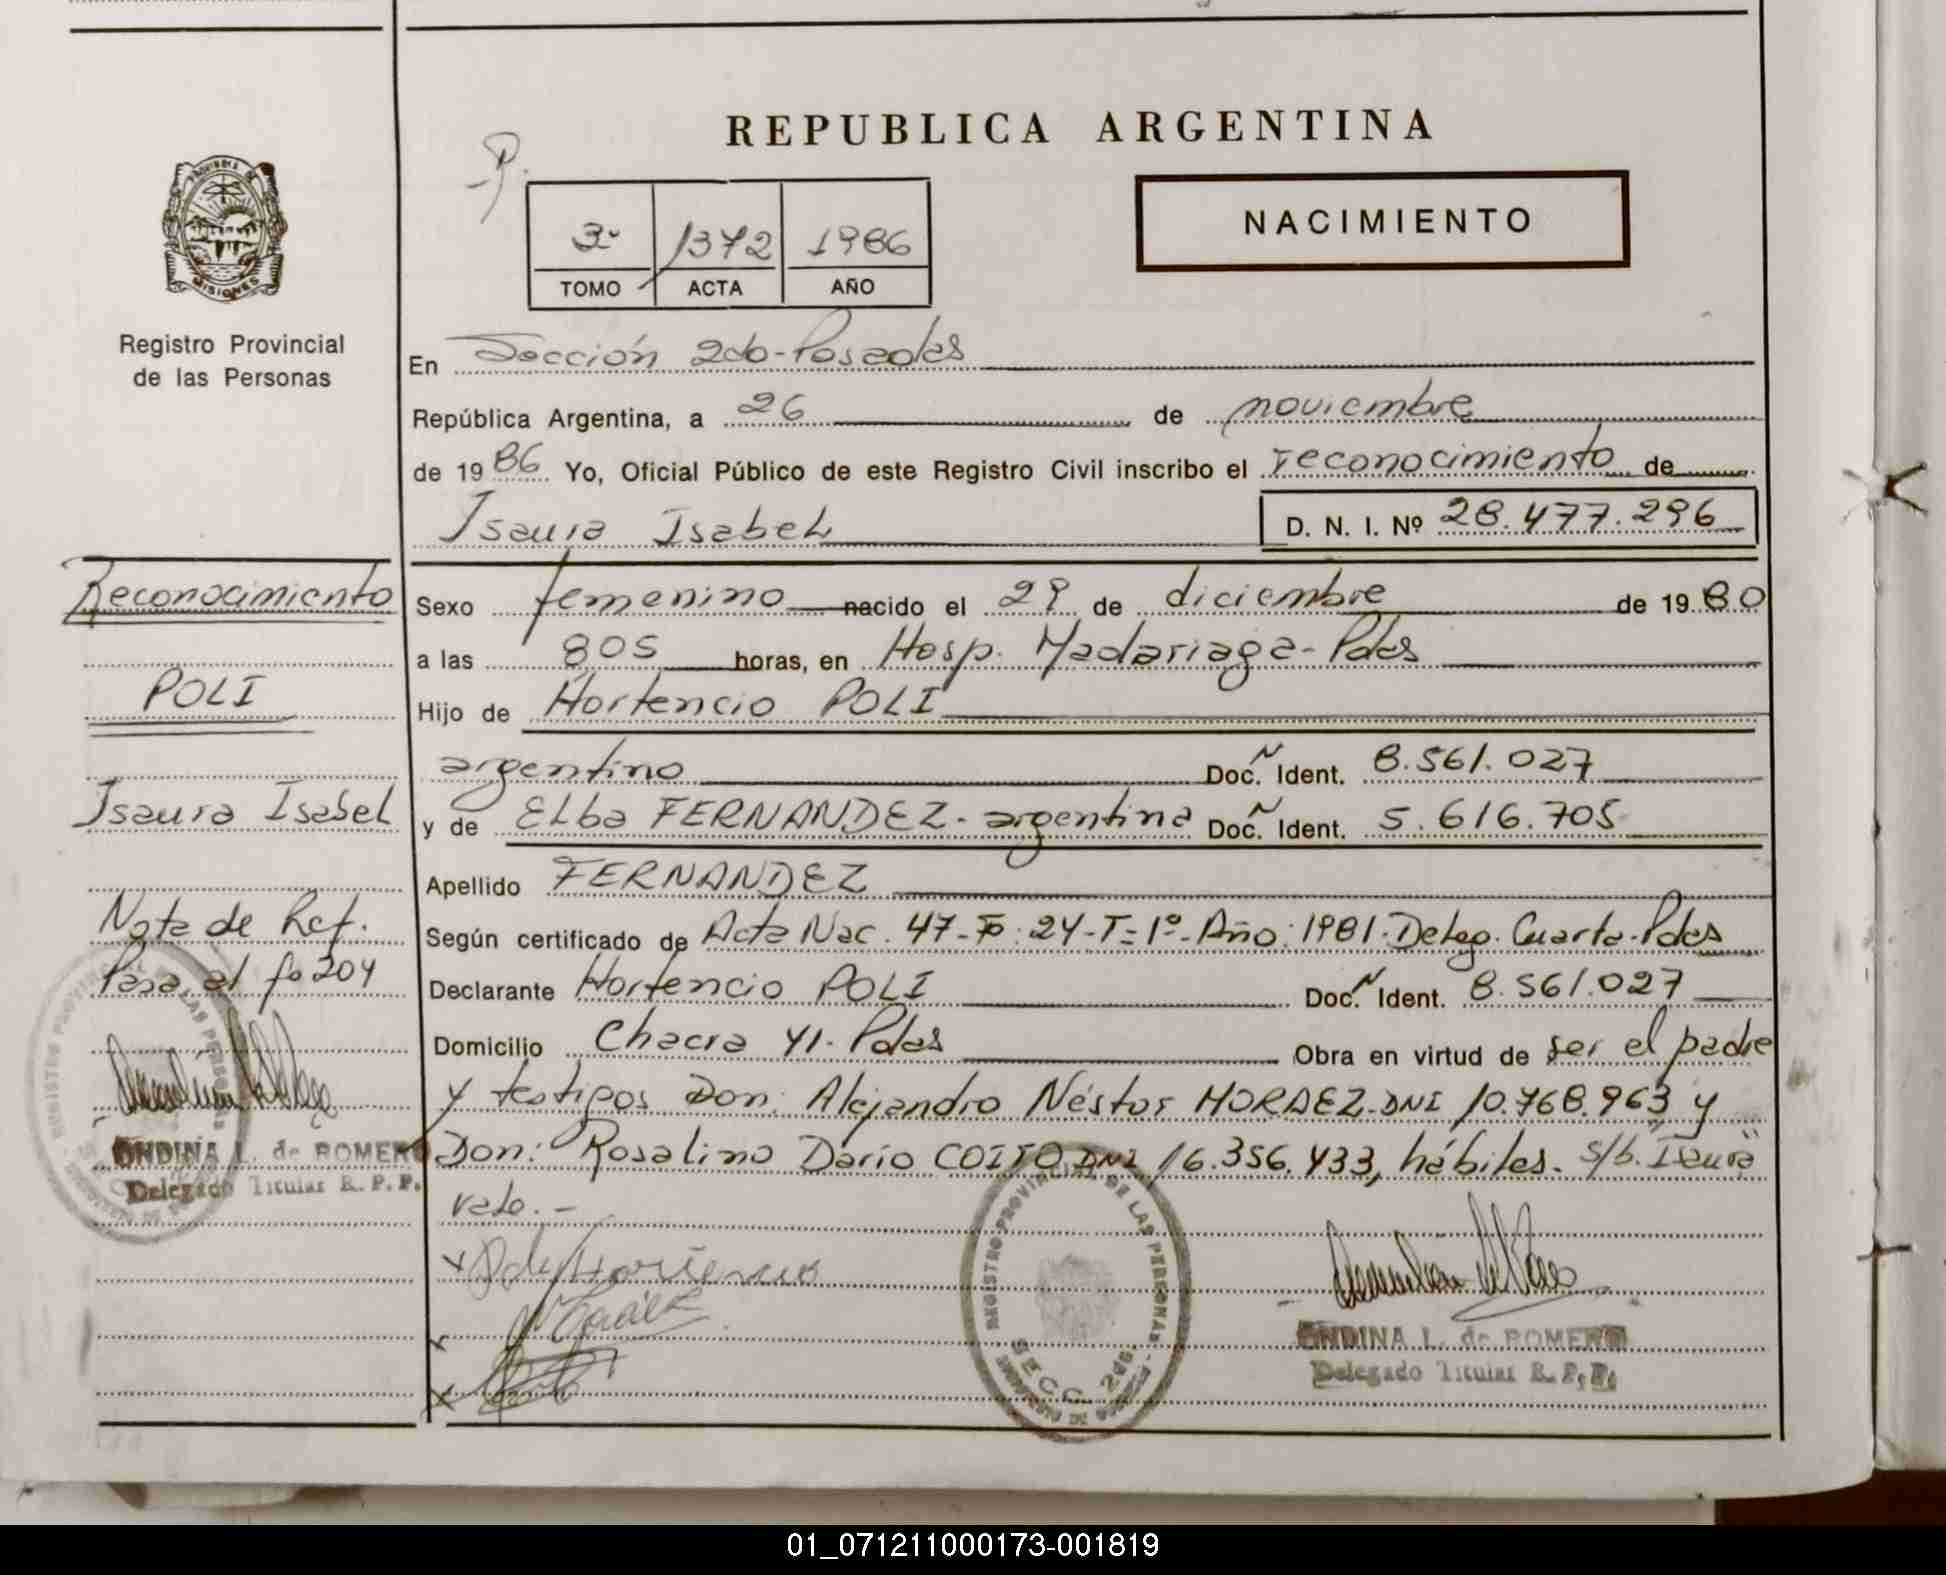 REPUBLICA ARGENTINA
NACIMIENTO
3º 1372 1986
TOMO ACTA AÑO
PROVINCIA DE
MISIONES
Registro Provincial
de las Personas
En Sección 2do-Posadas
República Argentina, a 26 de noviembre
de 1986 Yo, Oficial Público de este Registro Civil inscribo el reconocimiento de
Isaura Isabel D. N. I. Nº 28.477.296
Sexo femenino nacido el 29 de diciembre de 1980
a las 805 horas, en Hosp. Madariaga-Pdas
Hijo de Hortencio POLI
argentino Doc. Ident. 8.561.027
y de Elba FERNANDEZ. argentina Doc. Ident. 5.616.705
Apellido FERNANDEZ
Según certificado de Acta Nac. 47-Fº: 24-T=1º-Año: 1981. Deleg. Cuarta-Pdas
Declarante Hortencio POLI Doc. Ident. 8.561.027
Domicilio Chacra 41-Pdas Obra en virtud de ser el padre
y testigos Don: Alejandro Néstor DNI 10.768.963 y
Don: Rosalino Darío COITO DNI 16.356.433, hábiles. s/b. "Isaura"
vale.-
Reconocimiento
POLI
Isaura Isabel
Nota de Ref.
Pasa al fº 204
ONDINA L. de ROMERO
Delegado Titular R. P. P.
REGISTRO PROVINCIAL DE LAS PERSONAS
SECC. 2da.
ONDINA L. de ROMERO
Delegado Titular R. P. P.
01_071211000173-001819